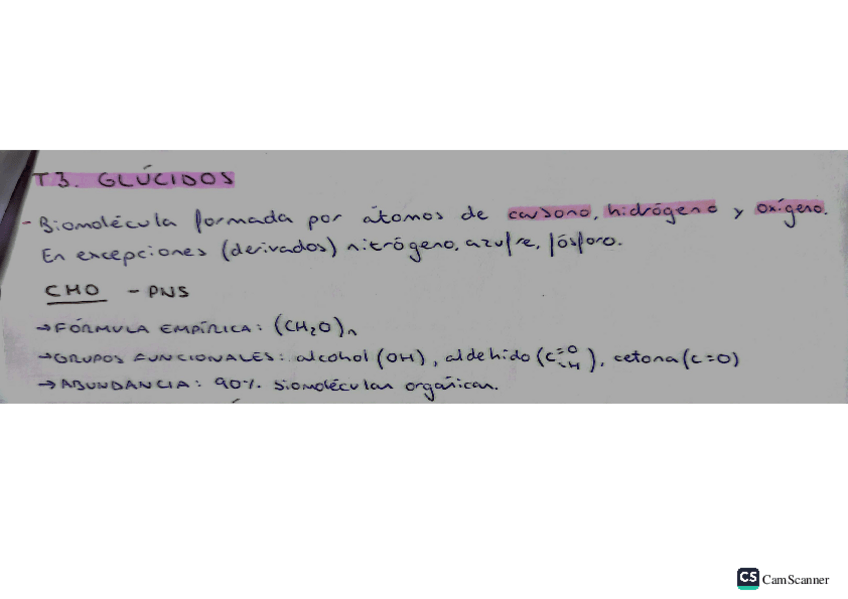 T3. GLÚCIDOS
- Biomolécula formada por átomos de carbono, hidrógeno y oxígeno.
En excepciones (derivados) nitrógeno, azufre, fósforo.
CHO - PNS
→ FÓRMULA EMPÍRICA: (CH₂O)n
→ GRUPOS FUNCIONALES: alcohol (OH), aldehido (C=O-H), cetona (C=O)
→ ABUNDANCIA: 90% biomoléculas orgánicas.
CS CamScanner